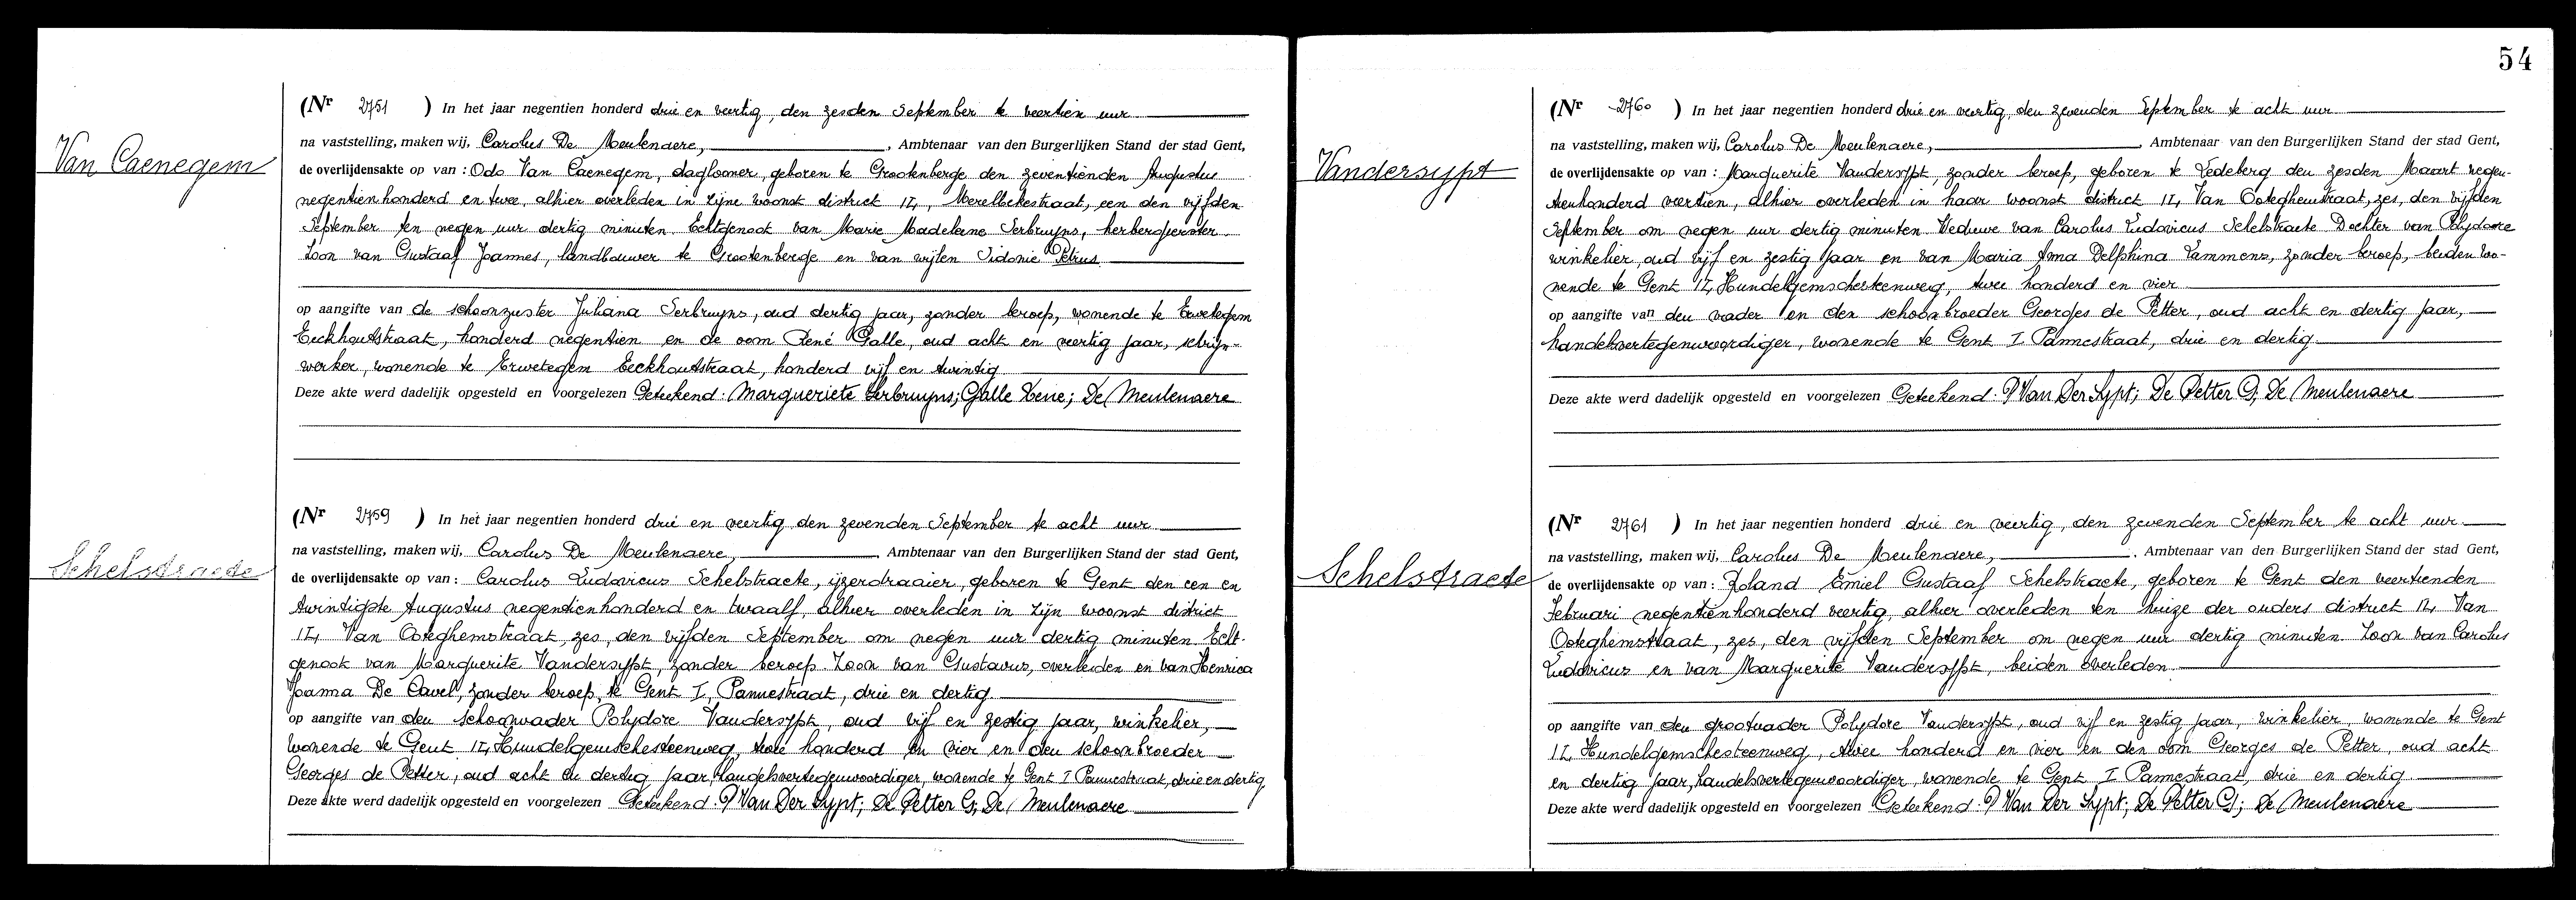 54
Van Caenegem
(Nr 2751 ) In het jaar negentien honderd drie en veertig, den zesden September te veertien uur
na vaststelling, maken wij, Carolus De Meulenaere, , Ambtenaar van den Burgerlijken Stand der stad Gent,
de overlijdensakte op van : Odo Van Caenegem, daglooner, geboren te Grootenberge den zeventienden Augustus
negentienhonderd en twee, alhier overleden in zijne woonst district II, Meerelbekestraat, een den vijfden
September ten negen uur dertig minuten. Echtgenoot van Marie Madeleine Serbruyns, herbergierster.
Zoon van Gustaaf Joannes, landbouwer te Grootenberge en van wijlen Sidonie Petrus.
op aangifte van de schoonzuster Juliana Serbruyns, oud dertig jaar, zonder beroep, wonende te Erwetegem
Eeckhoutstraat, honderd negentien en de oom René Galle, oud acht en veertig jaar, schrijn-
werker, wonende te Erwetegem Eeckhoutstraat, honderd vijf en twintig
Deze akte werd dadelijk opgesteld en voorgelezen Geteekend: Margueriete Serbruyns; Galle Rene; De Meulenaere
Schelstraete
(Nr 2759 ) In het jaar negentien honderd drie en veertig den zevenden September te acht uur
na vaststelling, maken wij, Carolus De Meulenaere, , Ambtenaar van den Burgerlijken Stand der stad Gent,
de overlijdensakte op van : Carolus Ludovicus Schelstraete, ijzerdraaier, geboren te Gent den een en
twintigste Augustus negentienhonderd en twaalf, alhier overleden in zijn woonst district
II, Van Ooteghemstraat, zes, den vijfden September om negen uur dertig minuten. Echt-
genoot van Marguerite Vandersypt, zonder beroep. Zoon van Gustavus, overleden en van Henrica
Joanna De Cavel, zonder beroep, te Gent I, Pannestraat, drie en dertig.
op aangifte van den schoonvader Polydore Vandersypt, oud vijf en zestig jaar, winkelier,
wonende te Gent II, Hundelgemschesteenweg, twee honderd en vier en den schoonbroeder
Georges de Petter, oud acht en dertig jaar, handelsvertegenwoordiger, wonende te Gent I Pannestraat, drie en dertig
Deze akte werd dadelijk opgesteld en voorgelezen Geteekend: P Van Der Sypt; De Petter G; De Meulenaere
Vandersypt
(Nr 2760 ) In het jaar negentien honderd drie en veertig, den zevenden September te acht uur
na vaststelling, maken wij, Carolus De Meulenaere, , Ambtenaar van den Burgerlijken Stand der stad Gent,
de overlijdensakte op van : Marguerite Vandersypt, zonder beroep, geboren te Ledeberg den zesden Maart negen-
tienhonderd veertien, alhier overleden in haar woonst district II, Van Ooteghemstraat, zes, den vijfden
September om negen uur dertig minuten. Weduwe van Carolus Ludovicus Schelstraete Dochter van Polydoore
winkelier, oud vijf en zestig jaar en van Maria Anna Delphina Lammens, zonder beroep, beiden wo-
nende te Gent II, Hundelgemschesteenweg, twee honderd en vier
op aangifte van den vader en den schoonbroeder Georges de Petter, oud acht en dertig jaar,
handelsvertegenwoordiger, wonende te Gent I Pannestraat, drie en dertig.
Deze akte werd dadelijk opgesteld en voorgelezen Geteekend: P Van Der Sypt; De Petter G; De Meulenaere
Schelstraete
(Nr 2761 ) In het jaar negentien honderd drie en veertig, den zevenden September te acht uur.
na vaststelling, maken wij, Carolus De Meulenaere, , Ambtenaar van den Burgerlijken Stand der stad Gent,
de overlijdensakte op van : Roland Emiel Gustaaf Schelstraete, geboren te Gent den veertienden
Februari negentienhonderd veertig, alhier overleden ten huize der ouders district II, Van
Ooteghemstraat, zes, den vijfden September om negen uur dertig minuten. Zoon van Carolus
Ludovicus en van Marguerite Vandersypt, beiden overleden.
op aangifte van den grootvader Polydore Vandersypt, oud vijf en zestig jaar, winkelier, wonende te Gent
II, Hundelgemschesteenweg, twee honderd en vier en den oom Georges de Petter, oud acht
en dertig jaar, handelsvertegenwoordiger, wonende te Gent I Pannestraat, drie en dertig.
Deze akte werd dadelijk opgesteld en voorgelezen Geteekend: P Van Der Sypt; De Petter G; De Meulenaere